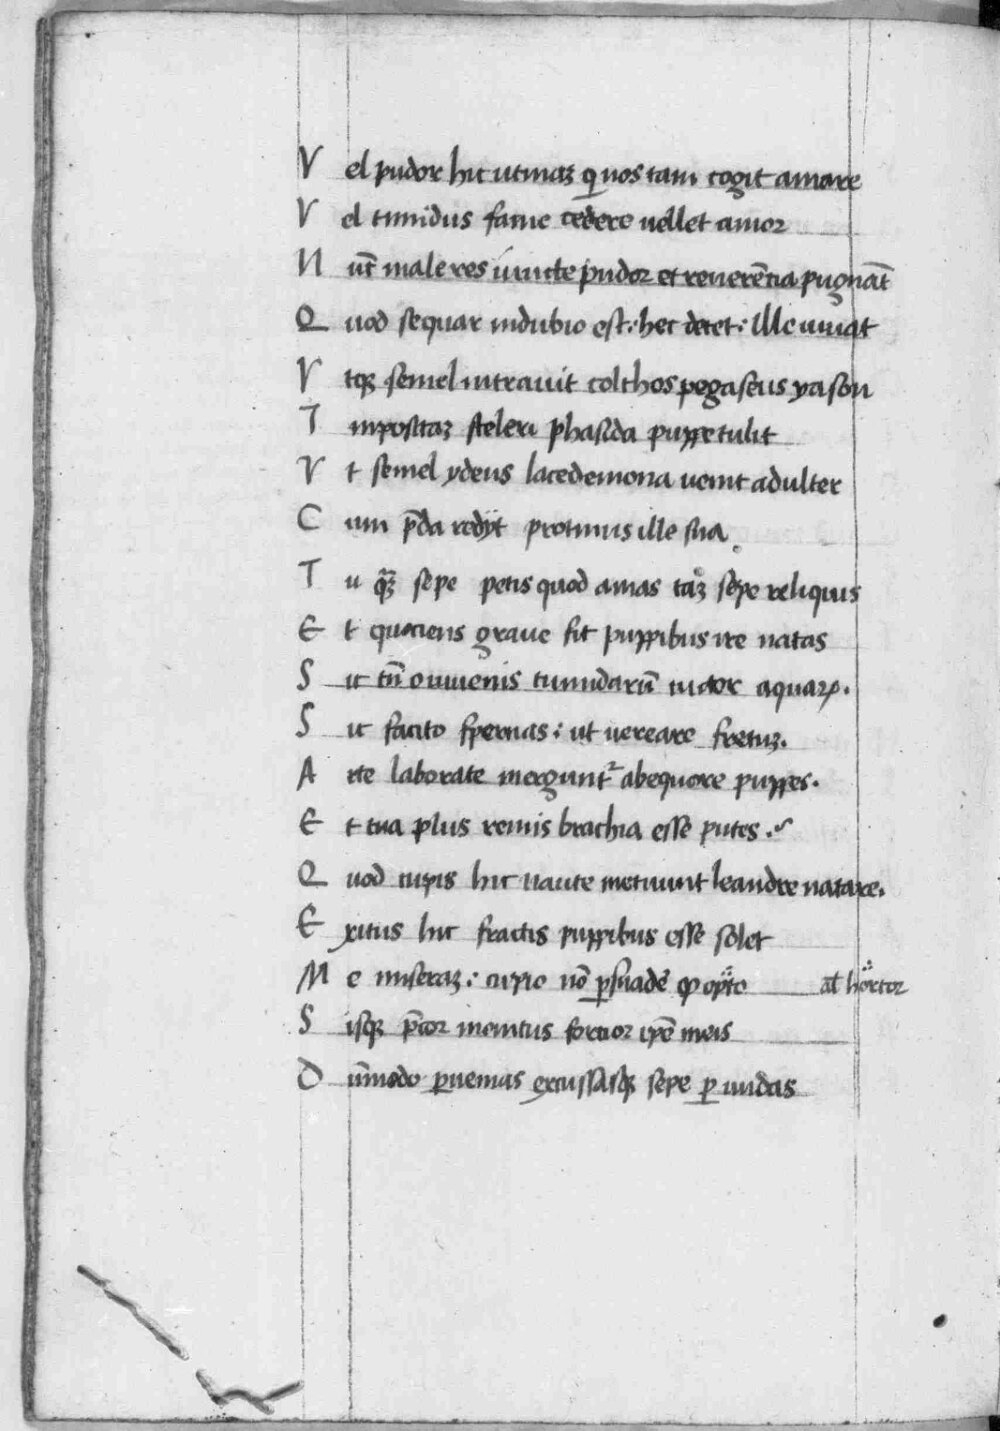 V el pudor hic utinaꝫ qͥ nos tam cogit amare
V el timidus fame cedere uellet amor
N uc̄ male res iuncte pudor et reuerēcia pugnāt
Q uod sequar indubio est: hec decet: ille iuuat
V tqꝫ semel intrauit colchos pegaseus yason
I mpositaꝫ sceleri phasida puppe tulit
V t semel ydeus lacedemona uenit adulter
C um p̄da redÿt protinus ille sua
T u qͣꝫ sepe petis quod amas taꝫ sepe reliquis
E t quociens graue fit puppibus ire natas
S ic tn̄ o iuuenis tumidarū uictor aquarꝝ.
S ic facito spernas: ut uereare fretuꝫ.
A rte laborate merguntᷣ abequore puppes.
E t tua plus remis brachia esse putes.
Q uod cupis hic naute metuunt leandre natare.
E xitus hic fractis puppibus esse solet
M e miseraꝫ: cupio nō ꝑsuadē ꝙ opto al̄ hortor
S isqꝫ p̄cor monitus fortior ip̄e meis
D ūmodo ꝑuenias excussasqꝫ sepe ꝑ undas